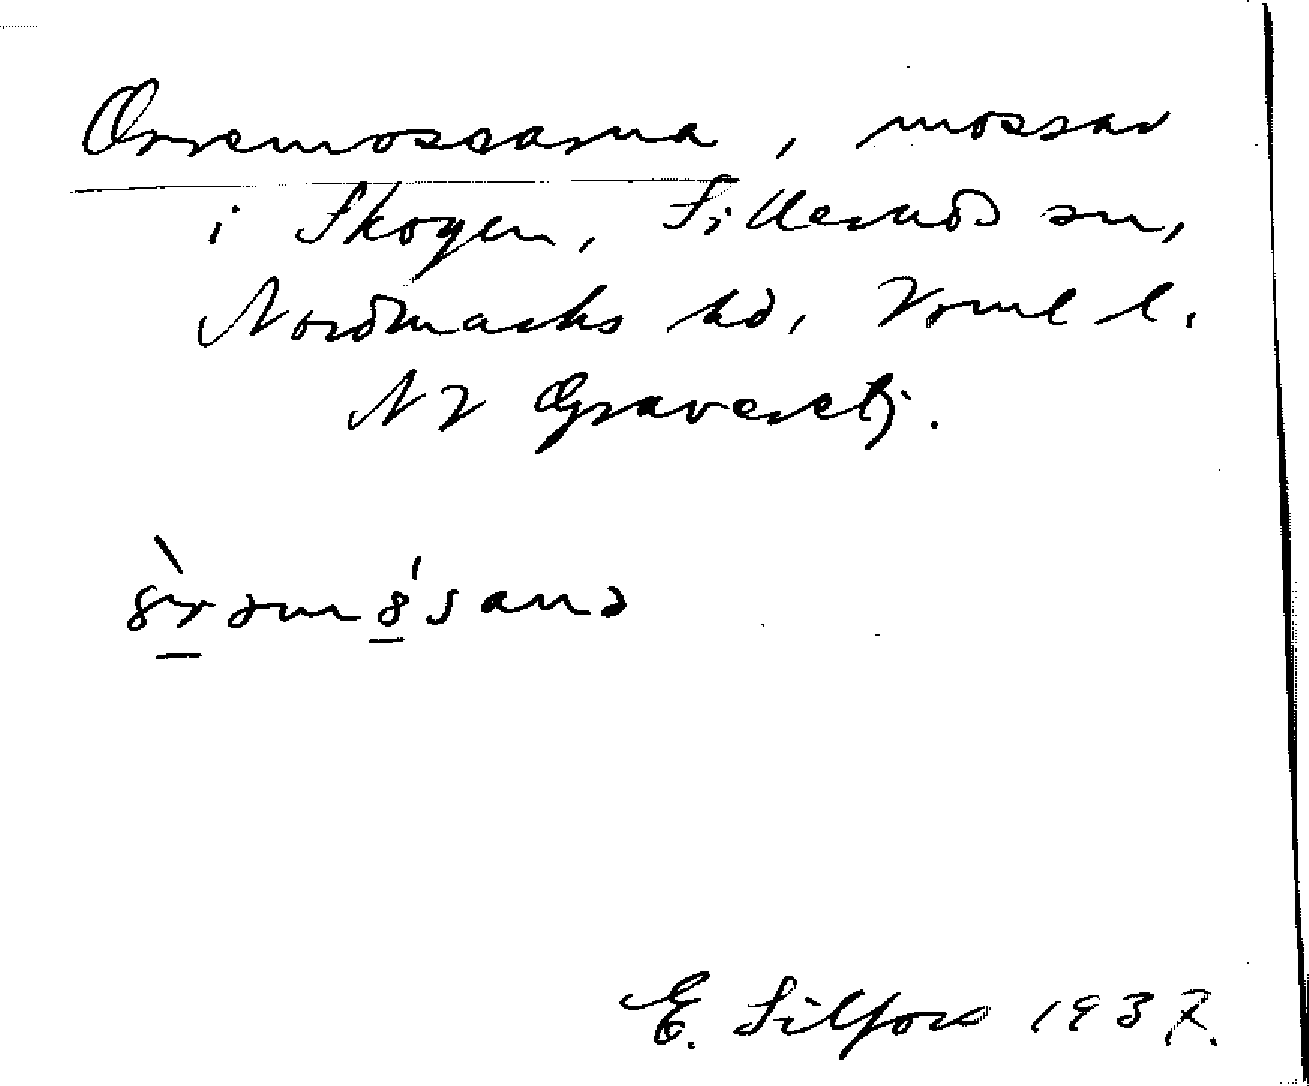 Orremossarna, mossar
i Skogen, Silleruds sn,
Nordmarks hd, Vrml l.
NV Graveselj.
E. Silfors 1937.